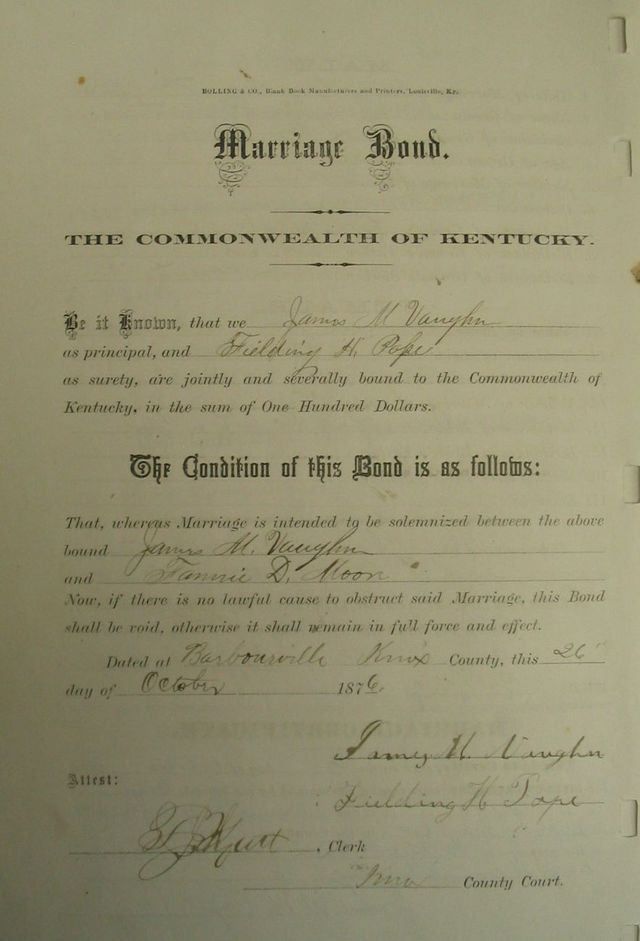 BOLLING & CO., Blank Book Manufacturers and Printers, Louisville, Ky.
Marriage Bond.
THE COMMONWEALTH OF KENTUCKY.
Be it Known, that we James M Vaughn
as principal, and Fielding H. Pope
as surety, are jointly and severally bound to the Commonwealth of
Kentucky, in the sum of One Hundred Dollars.
The Condition of this Bond is as follows:
That, whereas Marriage is intended to be solemnized between the above
bound James M. Vaughn
and Fannie D. Moon
Now, if there is no lawful cause to obstruct said Marriage, this Bond
shall be void, otherwise it shall remain in full force and effect.
Dated at Barbourville Knox County, this 26
day of October 1876.
James M. Vaughn
Attest:
Fielding H Pope
, Clerk
Knox County Court.